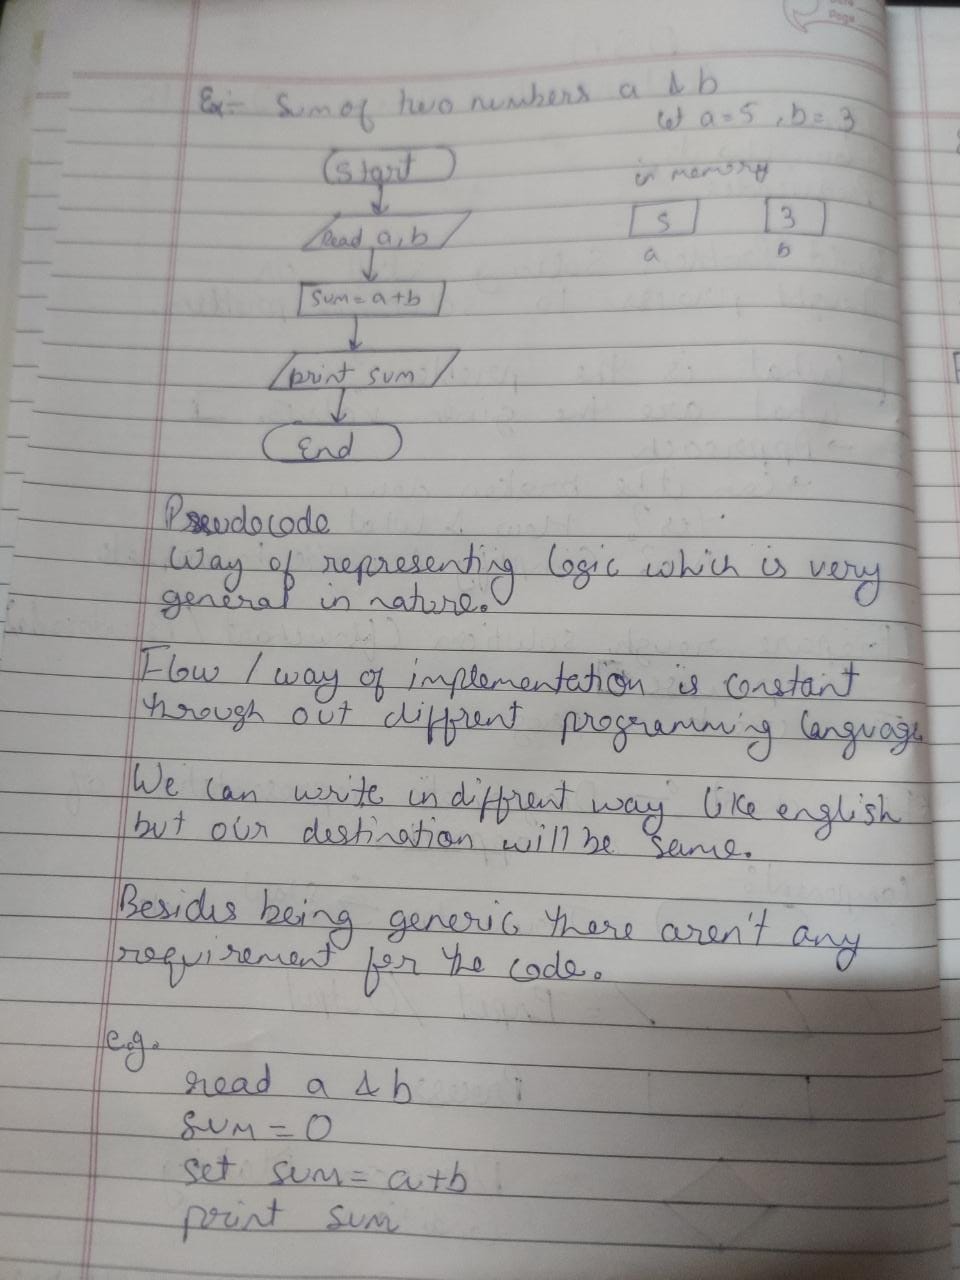 Page
Ex:- Sum of two numbers a & b
let a=5, b=3
Start
in memory
Read a,b
5
3
a
b
Sum=a+b
print sum
End
Pseudocode
Way of representing logic which is very
general in nature.
Flow / way of implementation is constant
through out diffrent programming language
We can write in diffrent way like english
but our destination will be same.
Besides being generic there aren't any
requirement for the code.
e.g.
read a & b
sum = 0
set sum = a+b
print sum